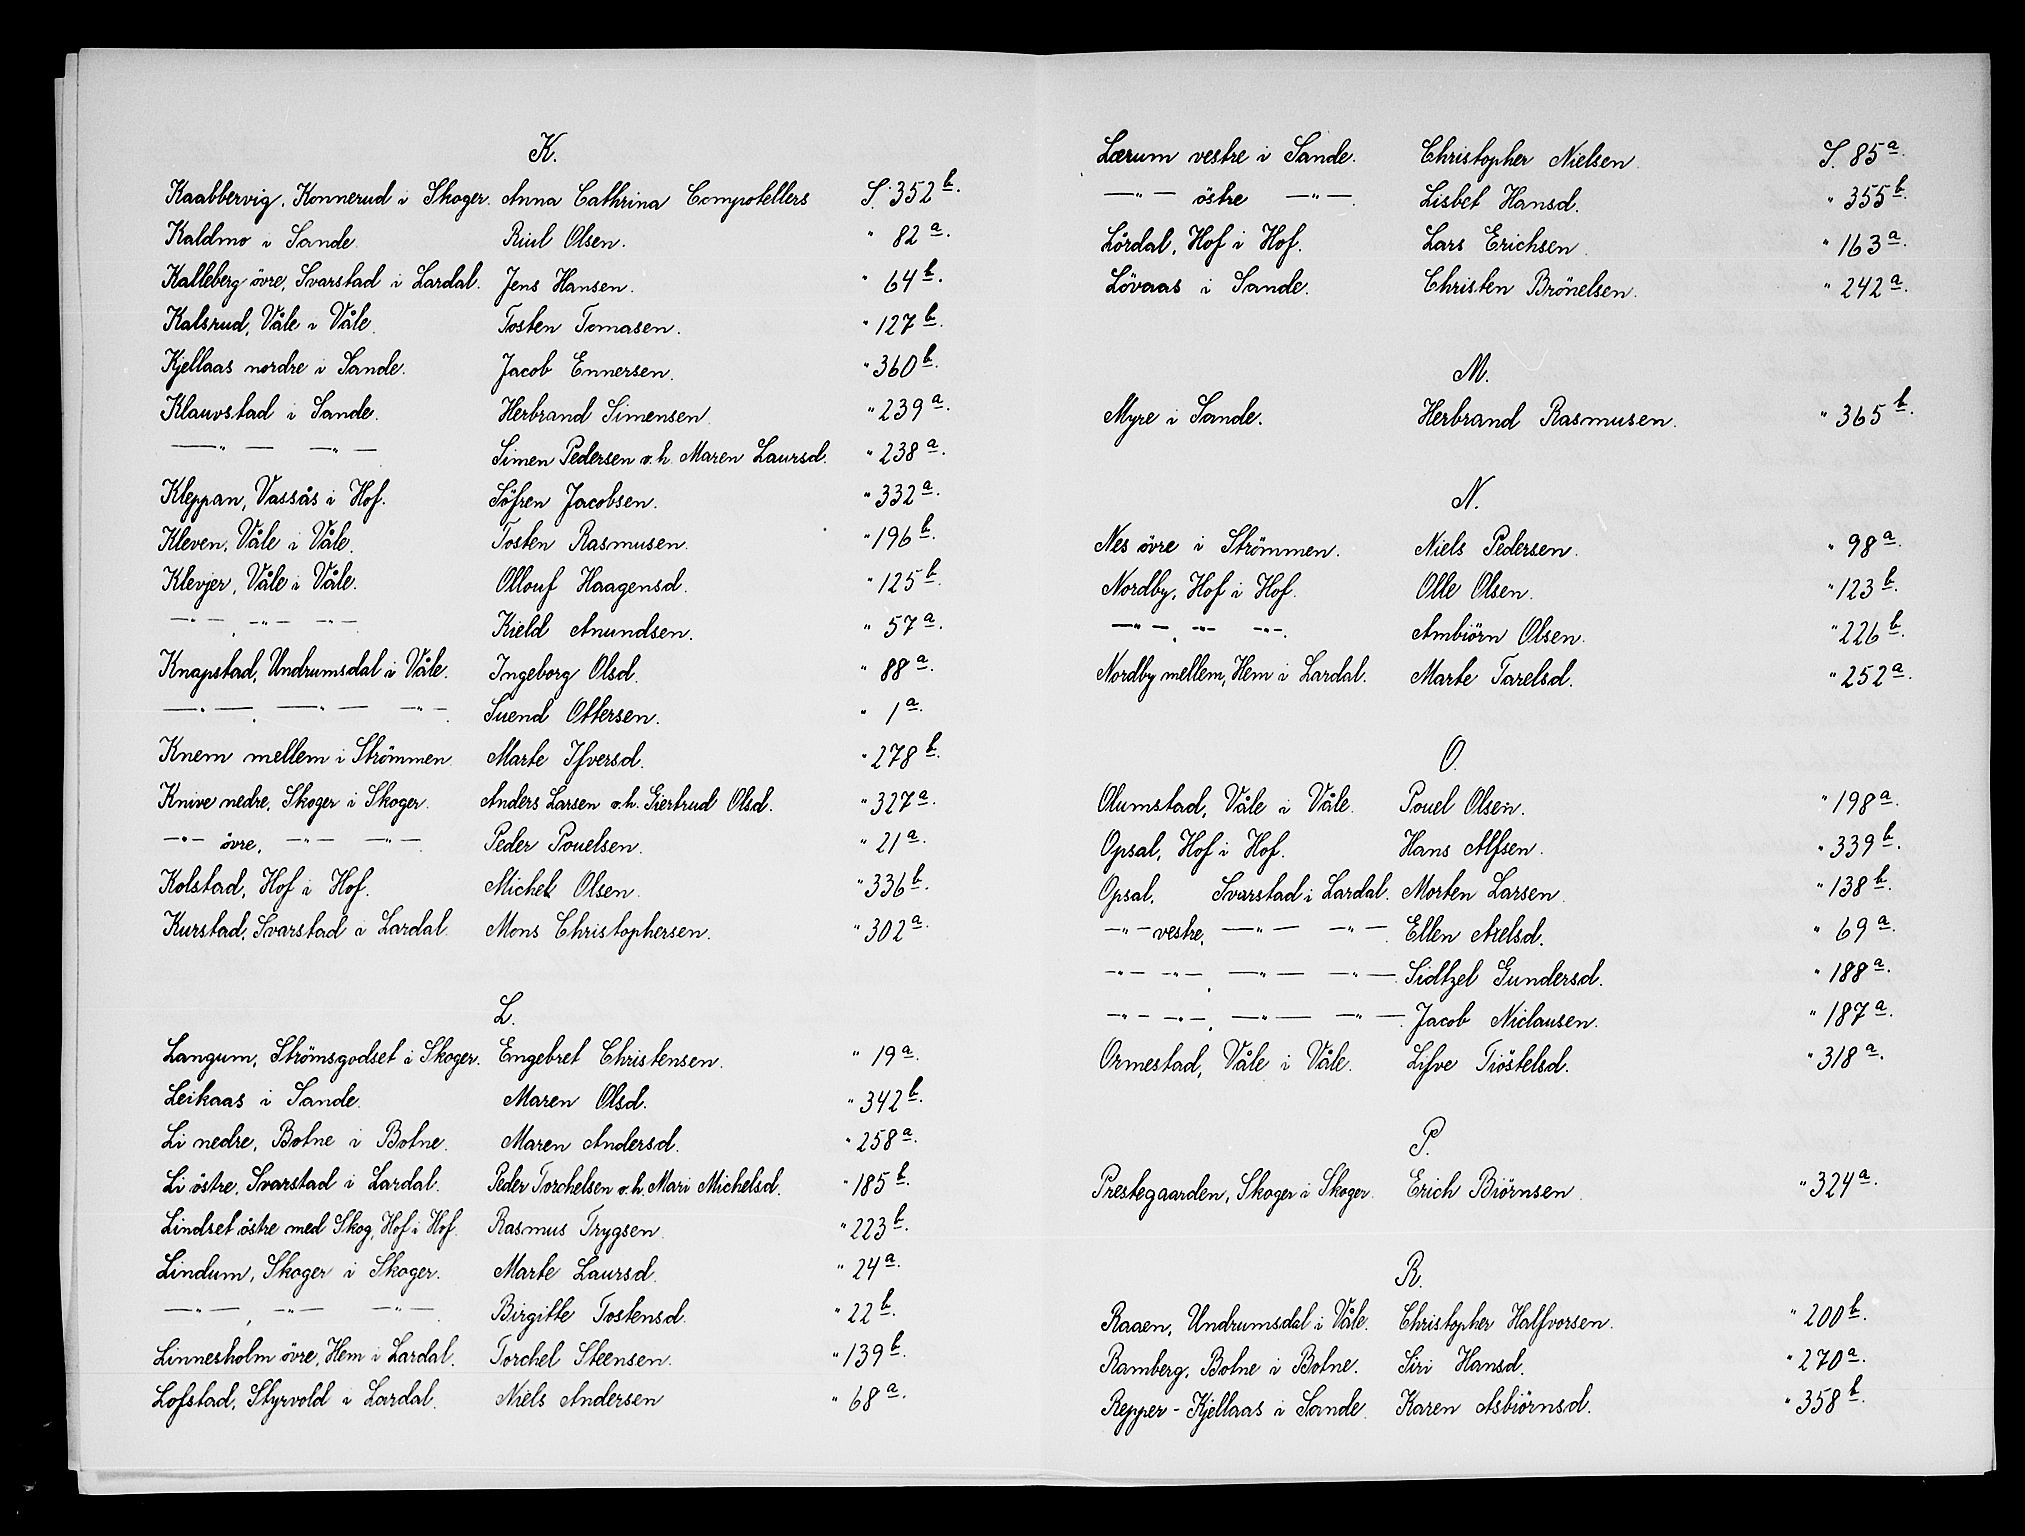 K.
Kaabbervig, Konnerud i Skoger. Anna Cathrina Compotellers S. 352 b.
Kaldmo i Sande. Riul Olsen. " 82 a.
Kalleberg övre, Svarstad i Lardal. Jens Hansen. " 64 b.
Kalsrud, Våle i Våle. Tosten Tomasen. " 127 b.
Kjellaas nordre i Sande. Jacob Ennersen. " 360 b.
Klauvstad i Sande. Herbrand Simensen. " 239 a.
—"— —"— Simen Pedersen o.h. Maren Laursd. " 238 a.
Kleppan, Vassås i Hof. Söfren Jacobsen. " 332 a.
Kleven, Våle i Våle. Tosten Rasmusen. " 196 b.
Klevjer, Våle i Våle. Ollouf Haagensd. " 125 b.
—"—, —"— —"— Kield Anundsen. " 57 a.
Knapstad, Undrumsdal i Våle. Ingeborg Olsd. " 88 a.
—"—, —"— —"—. Suend Ottersen. " 1 a.
Knem mellem i Strömmen. Marte Ifversd. " 278 b.
Knive nedre, Skoger i Skoger. Anders Larsen o.h. Giertrud Olsd. " 327 a.
—"— övre, —"— —"—. Peder Pouelsen. " 21 a.
Kolstad, Hof i Hof. Michel Olsen. " 336 b.
Kurstad, Svarstad i Lardal. Mons Christophersen. " 302 a.
L.
Langum, Strömsgodset i Skoger. Engebret Christensen. " 19 a.
Leikaas i Sande. Maren Olsd. " 342 b.
Li nedre, Botne i Botne. Maren Andersd. " 258 a.
Li östre, Svarstad i Lardal. Peder Torchelsen o.h. Mari Michelsd. " 185 b.
Lindset östre med Skog, Hof i Hof. Rasmus Trygsen. " 223 b.
Lindum, Skoger i Skoger. Marte Laursd. " 24 a.
—"—, —"— —"—. Birgitte Tostensd. " 22 b.
Linnesholm övre, Hem i Lardal. Torchel Steensen. " 139 b.
Lofstad, Styrvold i Lardal. Niels Andersen " 68 a.
Lærum vestre i Sande. Christopher Nielsen. S. 85 a.
—"— östre —"—. Lisbet Hansd. " 355 b.
Lördal, Hof i Hof. Lars Erichsen. " 163 a.
Lövaas i Sande. Christen Brönelsen. " 242 a.
M.
Myre i Sande. Herbrand Rasmusen. " 365 b.
N.
Nes övre i Strömmen. Niels Pedersen. " 98 a.
Nordby, Hof i Hof. Olle Olsen. " 123 b.
—"—, —"— —"—. Ambiörn Olsen. " 226 b.
Nordby mellem, Hem i Lardal. Marte Tarelsd. " 252 a.
O.
Olumstad, Våle i Våle. Pouel Olsen. " 198 a.
Opsal, Hof i Hof. Hans Alfsen. " 339 b.
Opsal, Svarstad i Lardal. Morten Larsen. " 138 b.
—"— vestre, —"— —"—. Ellen Axelsd. " 69 a.
—"— —"—, —"— —"—. Sidtzel Gundersd. " 188 a.
—"— —"—, —"— —"—. Jacob Niclausen. " 187 a.
Ormestad, Våle i Våle. Lifve Tiöstelsd. " 318 a.
P.
Prestegaarden, Skoger i Skoger. Erich Biörnsen. " 324 a.
R.
Raaen, Undrumsdal i Våle. Christopher Halfvorsen. " 200 b.
Ramberg, Botne i Botne. Siri Hansd. " 270 a.
Repper-Kjellaas i Sande. Karen Asbiörnsd. " 358 b.